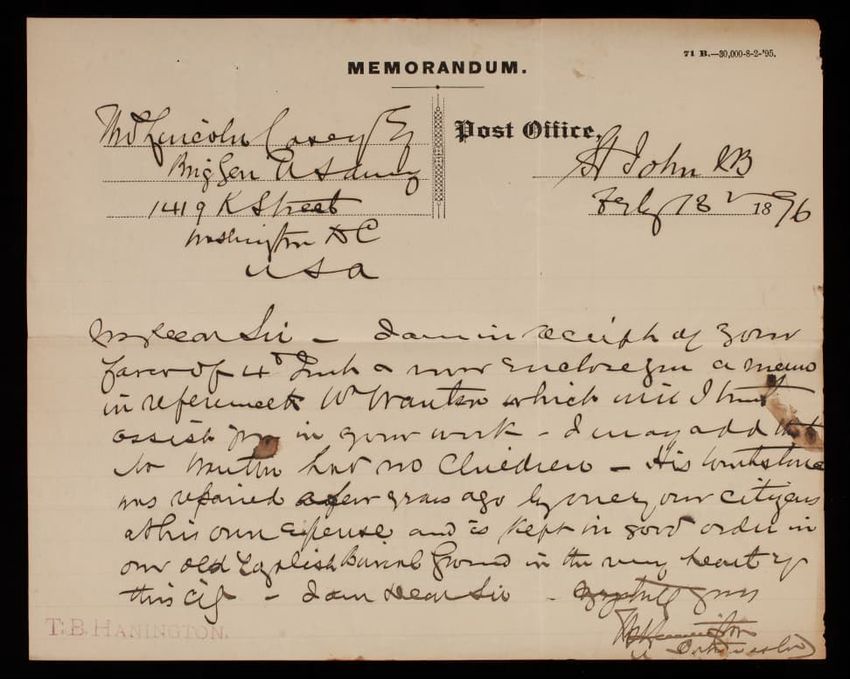 71 B.—30,000-8-2-'95.
MEMORANDUM.
Post Office,
Lincoln Casey
Brig Gen U S Army
1419 K Street
Washington D C
U S A
St John NB
Feby 18 1896
My dear Sir – I am in receipt of your
favor of 4th Inst & now enclose you a memo
in reference to Mr Wanton which will I trust
assist you in your work – I may add that
Mr Wanton had no Children – His tombstone
was repaired a few years ago by one of our citizens
at his own expense and is kept in good order in
our old English Burial Ground in the very heart of
this city – I am Dear Sir – yours
T. B. HANINGTON.
Hanington